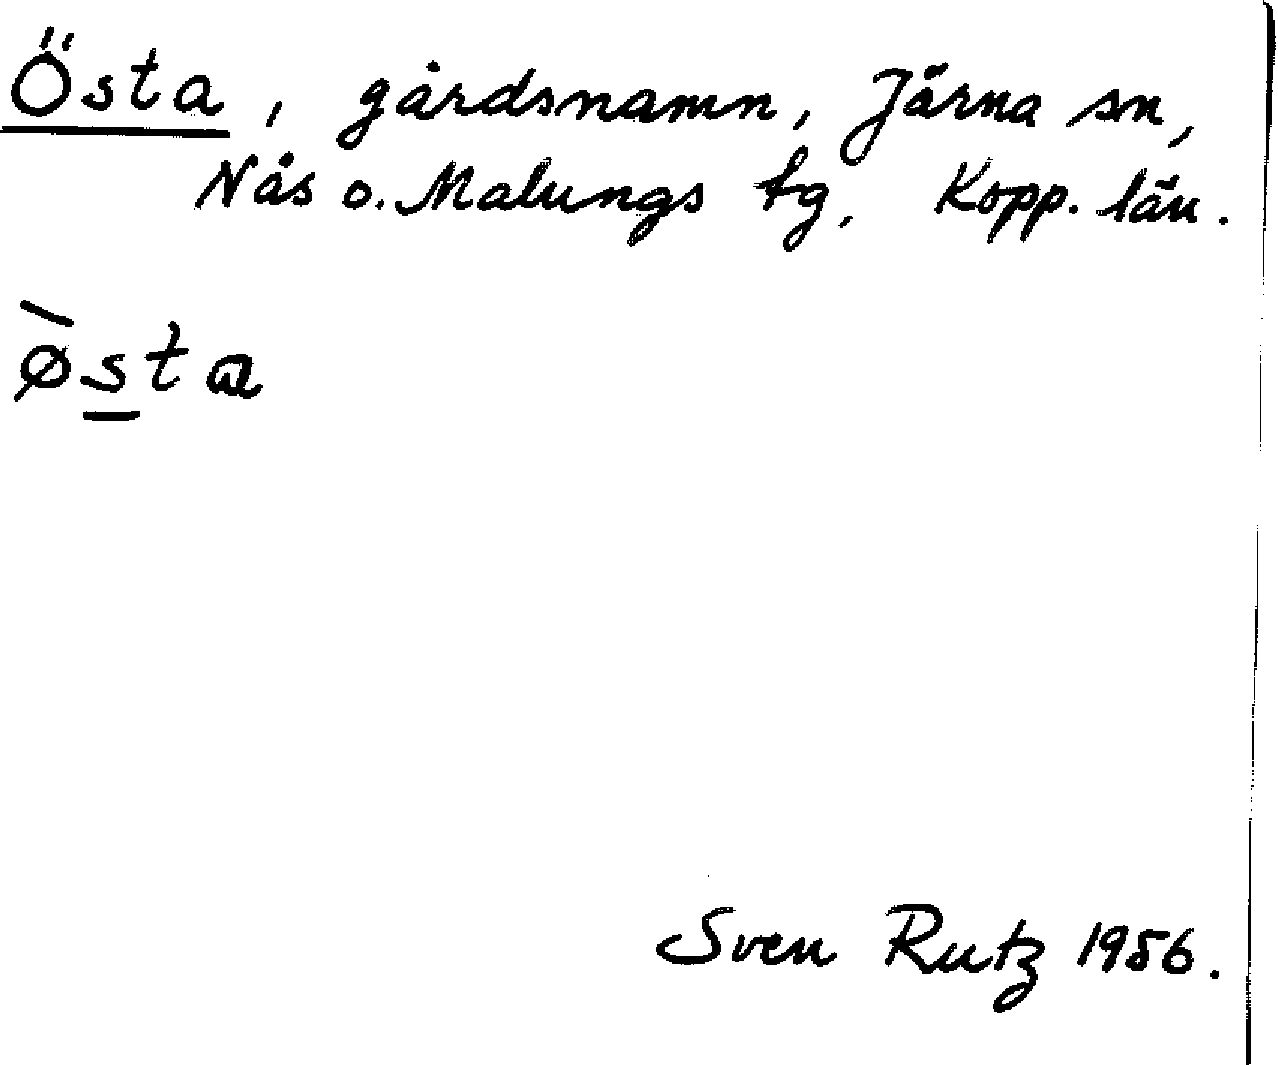 Östa, gårdsnamn, Järna sn,
Nås o. Malungs tg, Kopp. län.
ø̀sta
Sven Rutz 1956.